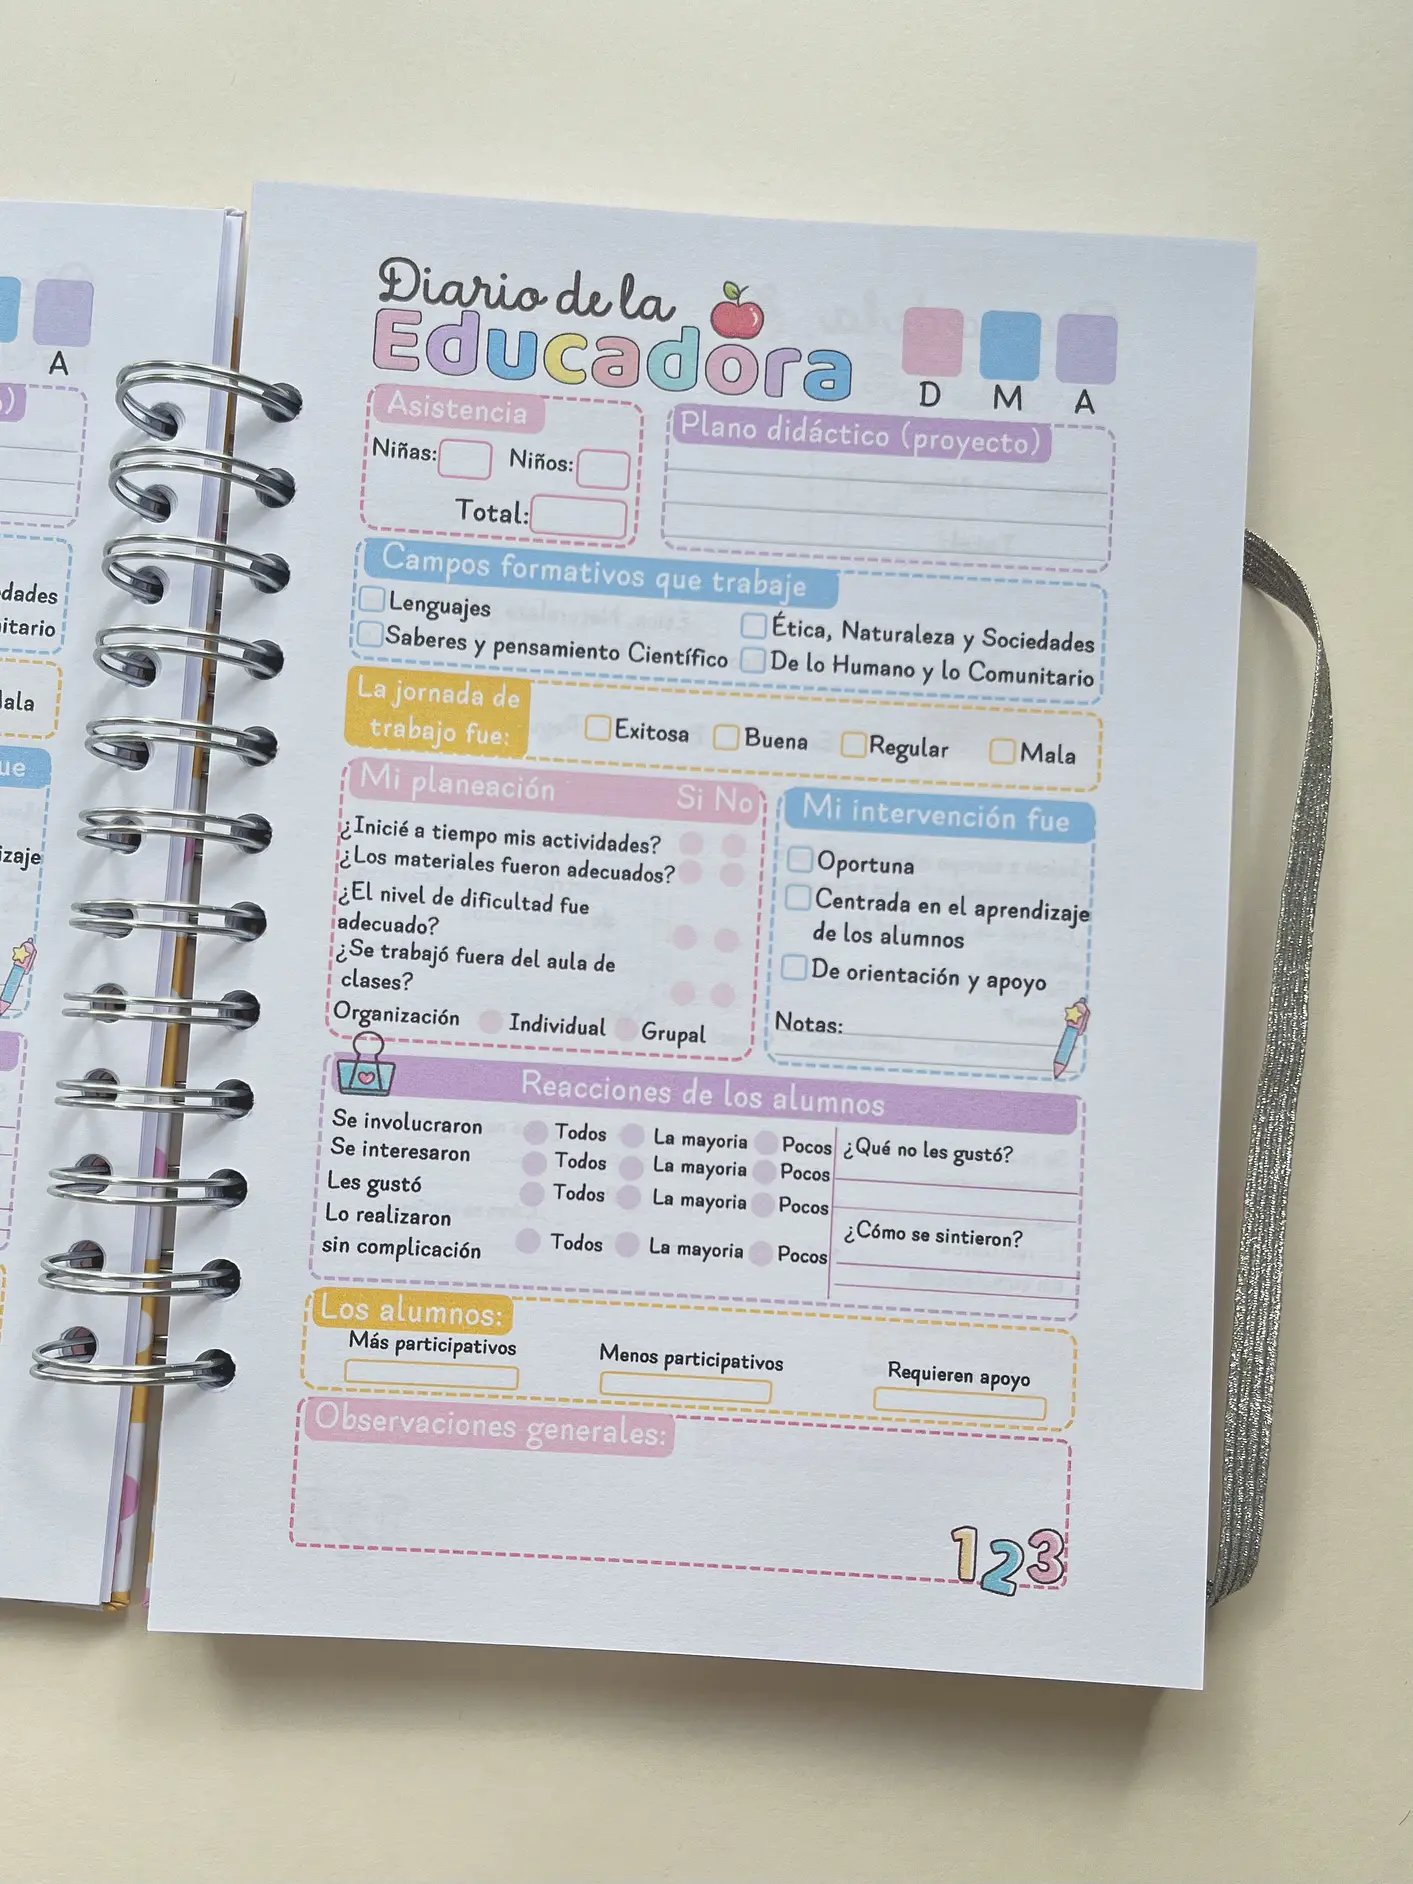 Diario de la
Educadora
D M A
Asistencia
Niñas: Niños:
Total:
Plano didáctico (proyecto)
Campos formativos que trabaje
Lenguajes
Saberes y pensamiento Científico
Ética, Naturaleza y Sociedades
De lo Humano y lo Comunitario
La jornada de
trabajo fue:
Exitosa Buena Regular Mala
Mi planeación Si No
¿Inicié a tiempo mis actividades?
¿Los materiales fueron adecuados?
¿El nivel de dificultad fue
adecuado?
¿Se trabajó fuera del aula de
clases?
Organización Individual Grupal
Mi intervención fue
Oportuna
Centrada en el aprendizaje
de los alumnos
De orientación y apoyo
Notas:
Reacciones de los alumnos
Se involucraron Todos La mayoria Pocos
Se interesaron Todos La mayoria Pocos
Les gustó Todos La mayoria Pocos
Lo realizaron
sin complicación Todos La mayoria Pocos
¿Qué no les gustó?
¿Cómo se sintieron?
Los alumnos:
Más participativos Menos participativos Requieren apoyo
Observaciones generales:
123
A